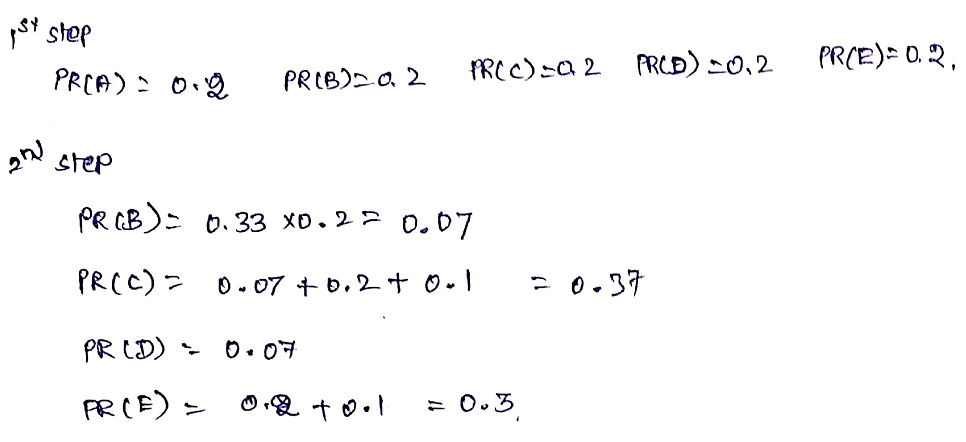 1st step
PR(A) = 0.2 PR(B) = 0.2 PR(C) = 0.2 PR(D) = 0.2 PR(E) = 0.2.
2nd step
PR(B) = 0.33 x0.2 = 0.07
PR(C) = 0.07 + 0.2 + 0.1 = 0.37
PR(D) = 0.07
PR(E) = 0.2 + 0.1 = 0.3.